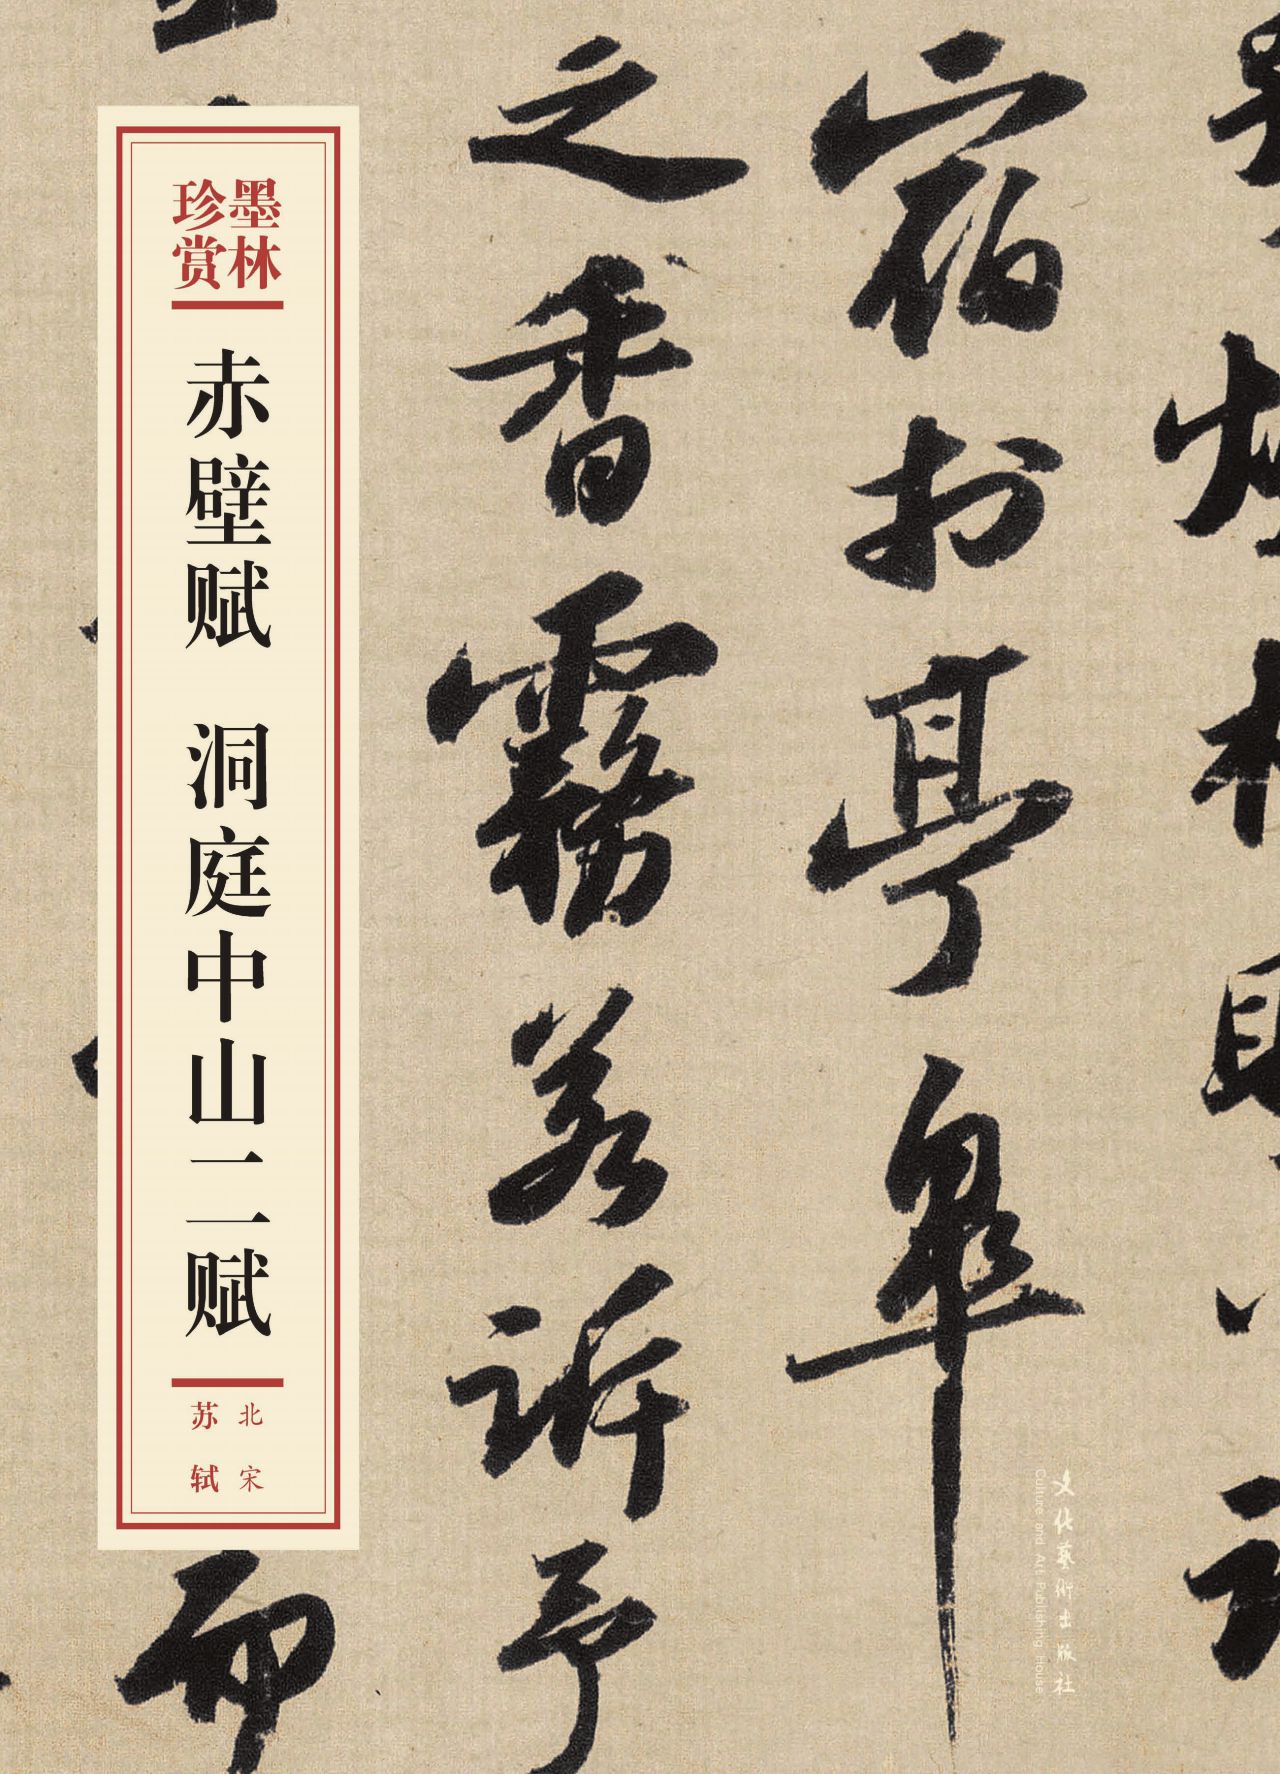 墨林
珍赏
赤壁赋 洞庭中山二赋
北宋
苏轼
宿於亭皋
之香霧若訴予
而
文化藝術出版社
Culture and Art Publishing House